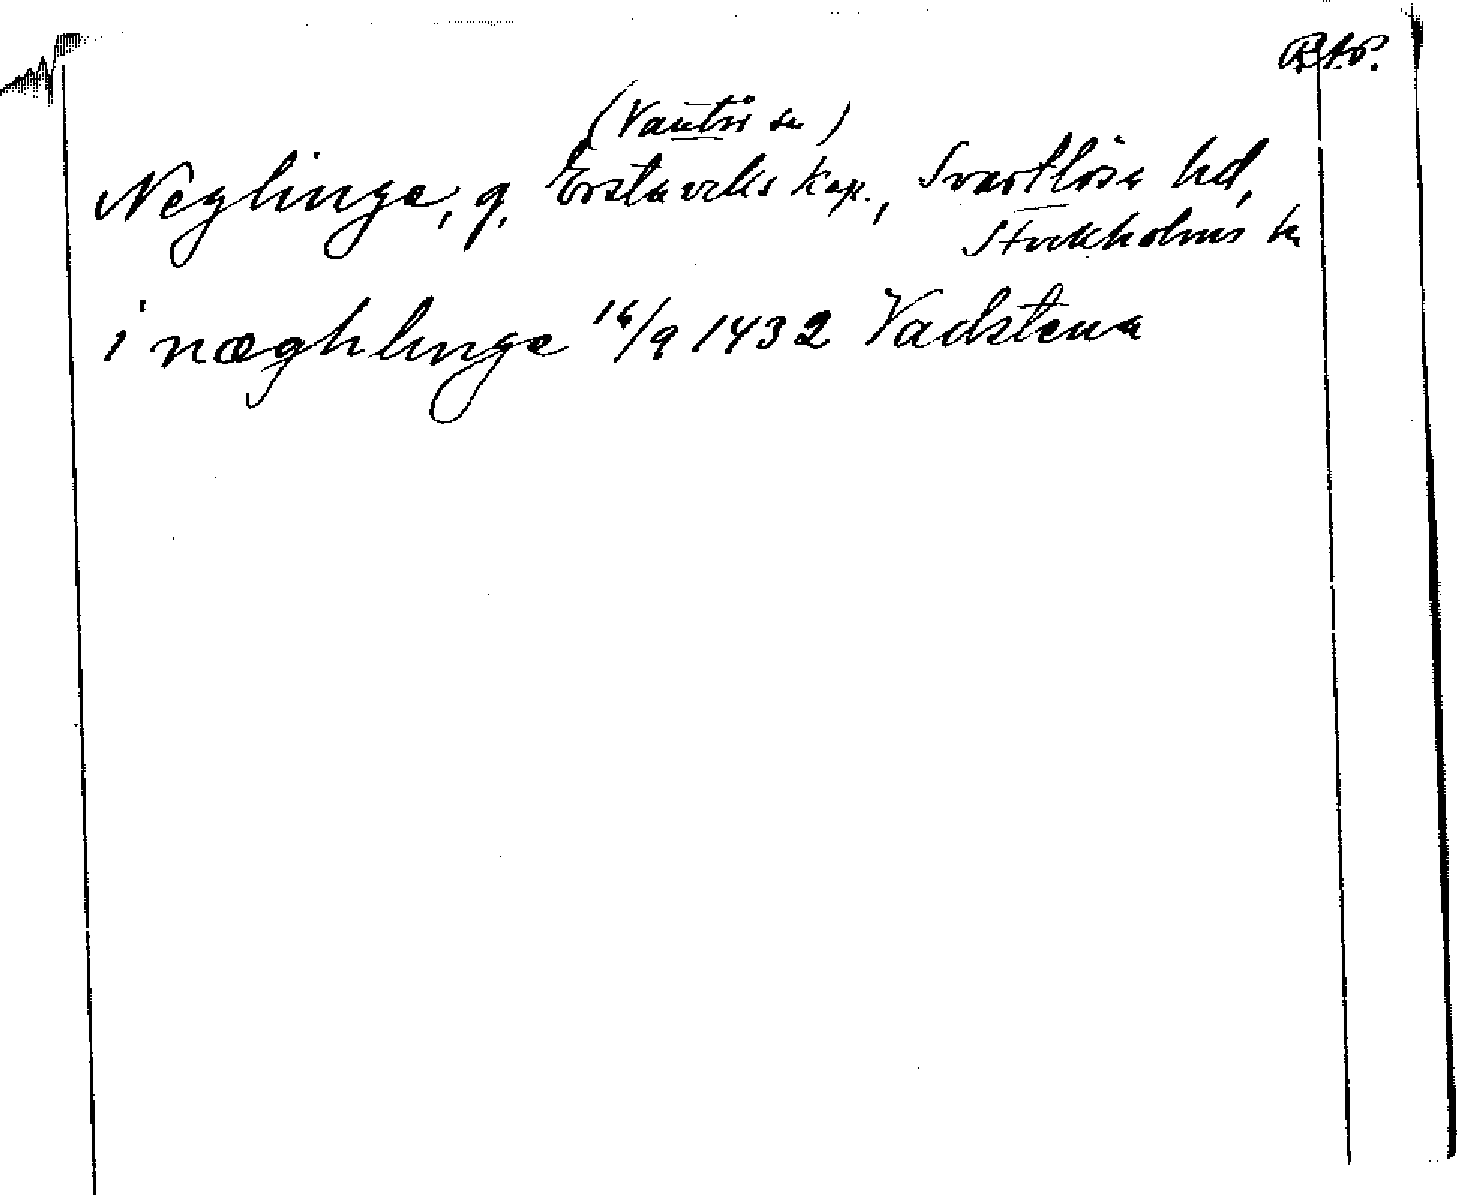 R.A.P.
(Vantör sn)
Neglinge, g. Erstaviks kap., Svartlösa hd,
Stockholms ln
i næghlinge 16/9 1432 Vadstena